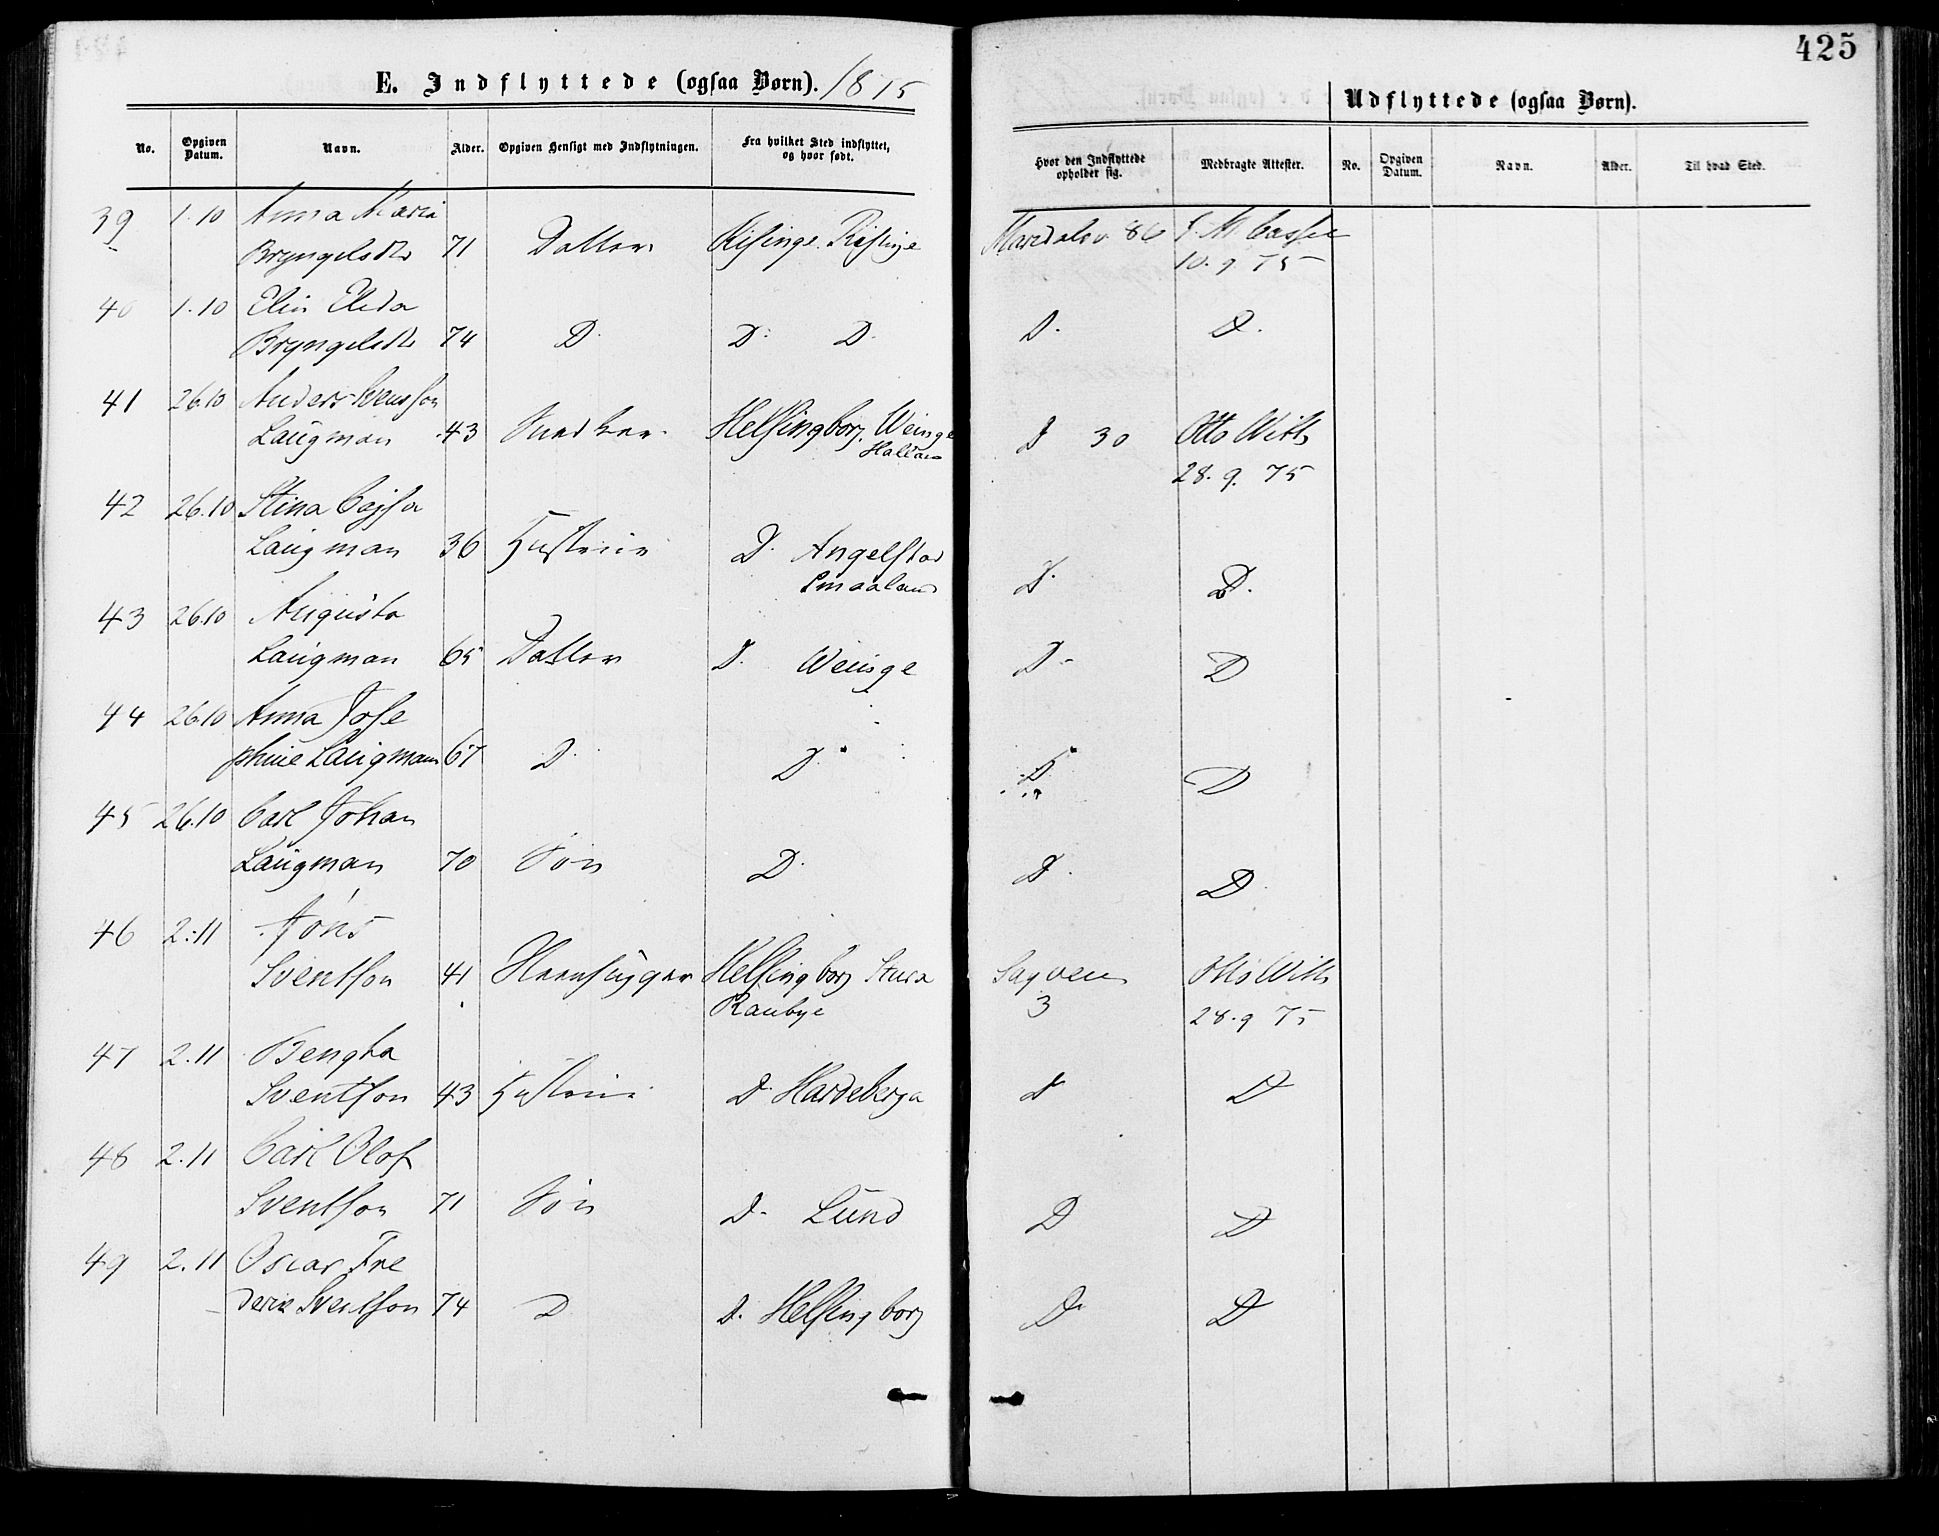 425
E. Indflyttede (ogsaa Børn). 1875
Udflyttede (ogsaa Børn).
No. Opgiven Datum. Navn. Alder. Opgiven Hensigt med Indflytningen. Fra hvilket Sted indflyttet, og hvor født. Hvor den Indflyttede opholder sig. Medbragte Attester. No. Opgiven Datum. Navn. Alder. Til hvad Sted.
39 1.10 Anna Maria
Bryngelsdtr 71 Datter Risinge Risinge 86
10.9.75
40 1.10 Elin
Bryngelsdtr 74 D. D. D. D. D.
41 26.10 Anders Svensson
Laugman 43 Snedker Helsingborg. Weinge D 30 Otto Witt
Halland 28.9.75
42 26.10 Stina Cajsa
Laugman 36 Hustrue D. Angelstad D. D.
Smaaland
43 26.10 Augusta
Laugman 65 Datter D. Weinge D. D
44 26.10 Anna Jose
phine Laugman 67 D. D. D D
45 26.10 Carl Johan
Laugman 70 Søn D. D. D.
46 2.11 Jöns
Sventson 41 Helsingborg Otto Witt
3 28.9 75
47 2.11 Bengta
Sventson 43 Hustrue D. Hardeberga D D
48 2.11 Carl Olof
Sventson 71 Søn D. Lund D D
49 2.11 Oscar Fre
derik Sventson 74 D D. Helsingborg D. D